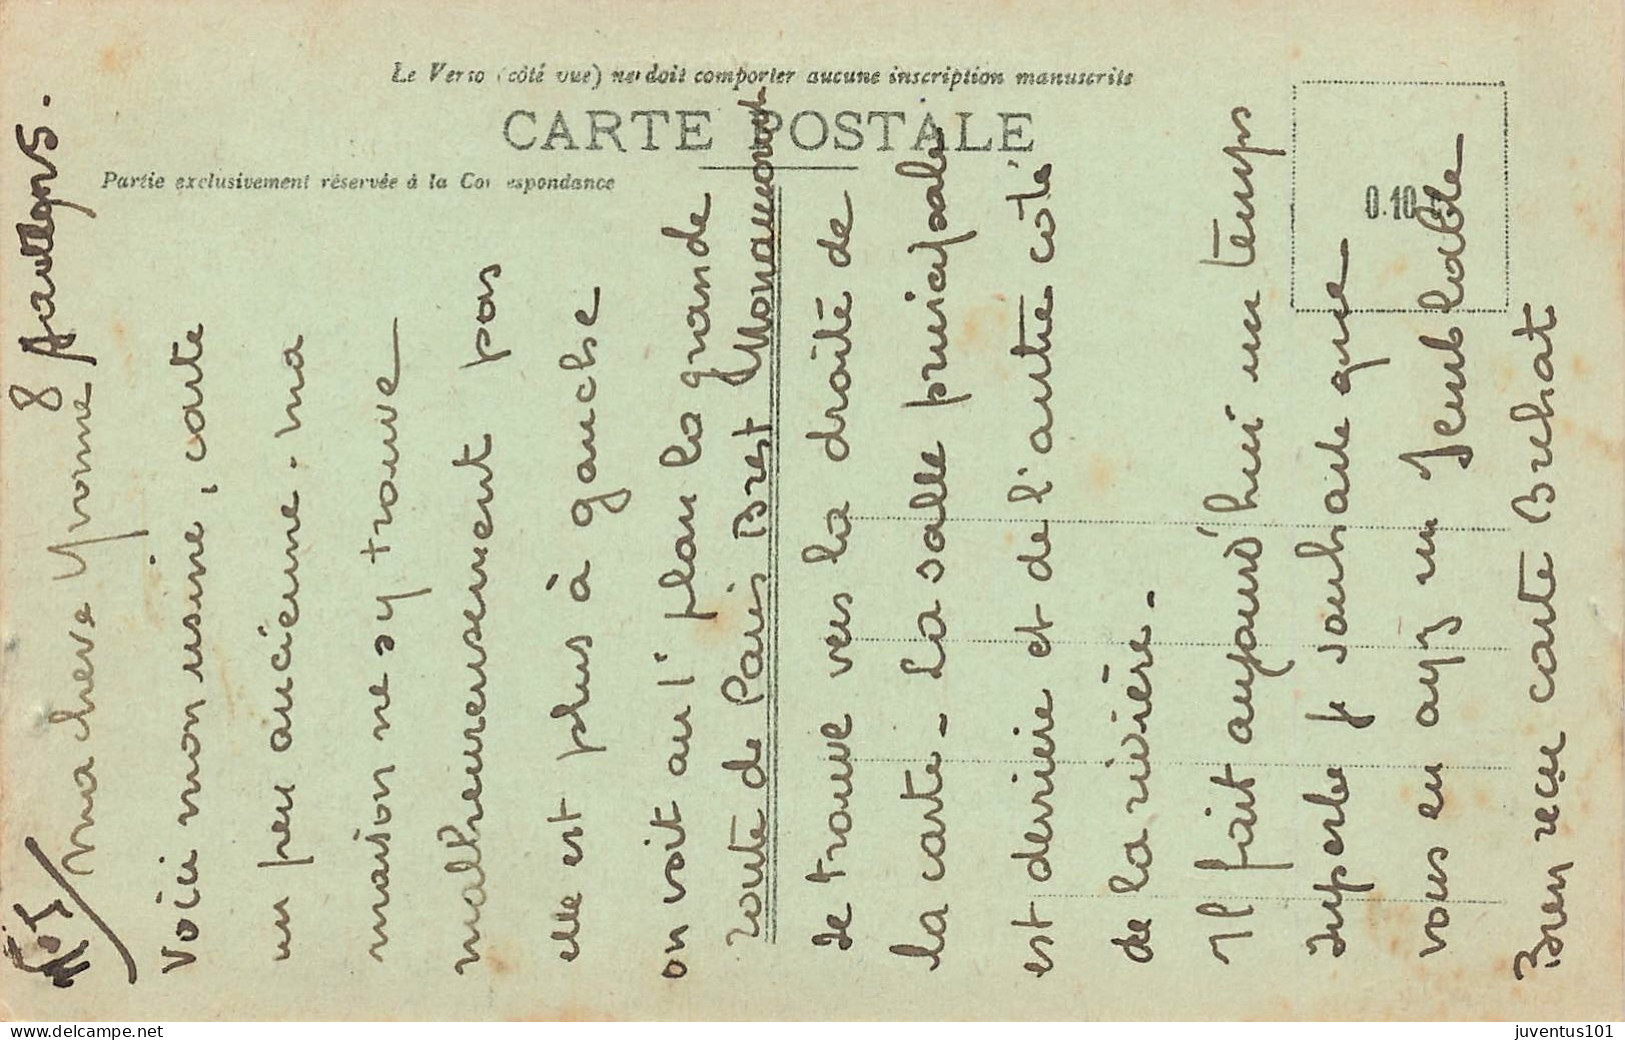 Le Verso (côté vue) ne doit comporter aucune inscription manuscrite
CARTE POSTALE
Partie exclusivement réservée à la Correspondance
0.10
8
Ma chere Yvonne
Voici mon usine, carte
un peu ancienne. Ma
maison ne s y trouve
malheureusement pas
elle est plus à gauche
on voit au 1 plan la grande
route de Paris Brest
se trouve vers la droite de
la carte - La salle principale
est derriere et de l'autre coté
de la rivière.
Il fait aujourd'hui un temps
superbe je souhaite que
vous en ayez un semblable
Bien reçu carte Brehat
www.delcampe.net
juventus101